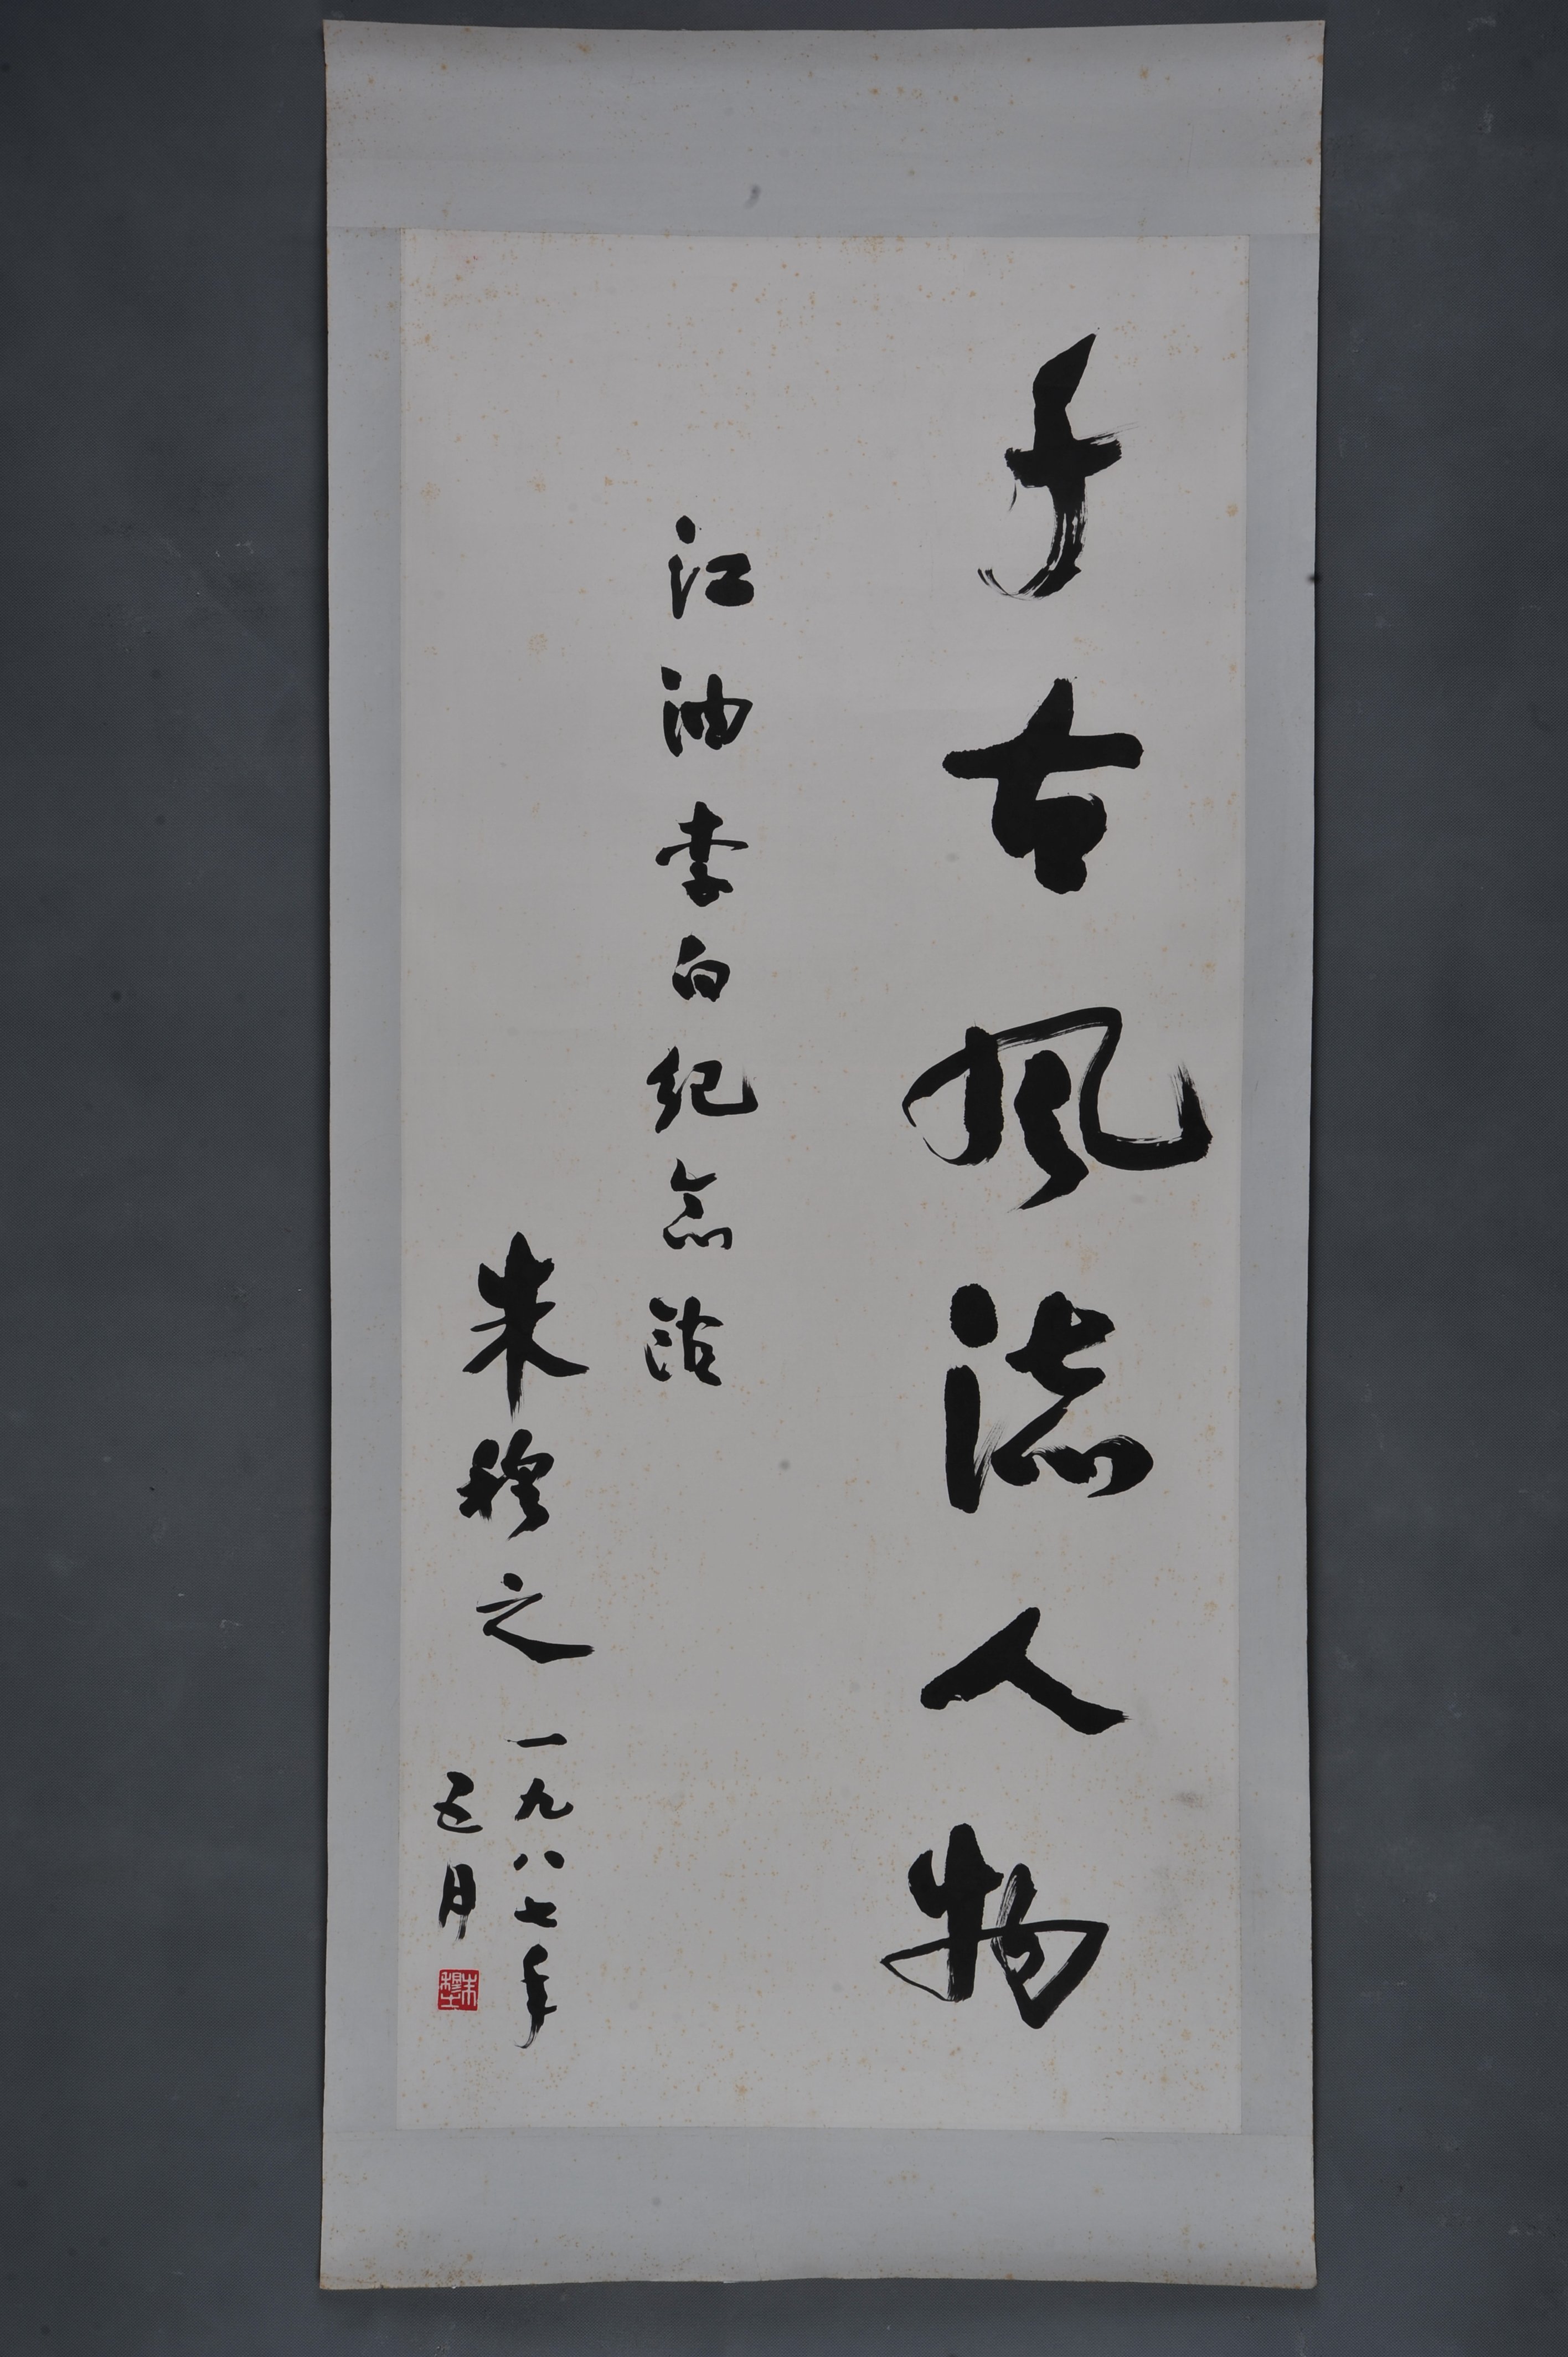 千古风流人物
江油李白纪念馆
朱穆之
一九八七年
五月
朱穆之